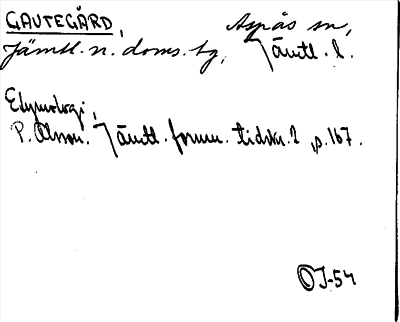 GAUTEGÅRD, Aspås sn,
Jämtl. n. doms. tg, Jämtl. l.
Etymologi,
P. Olsson. Jämtl. fornm. tidskr. 2 p. 167.
OJ-54